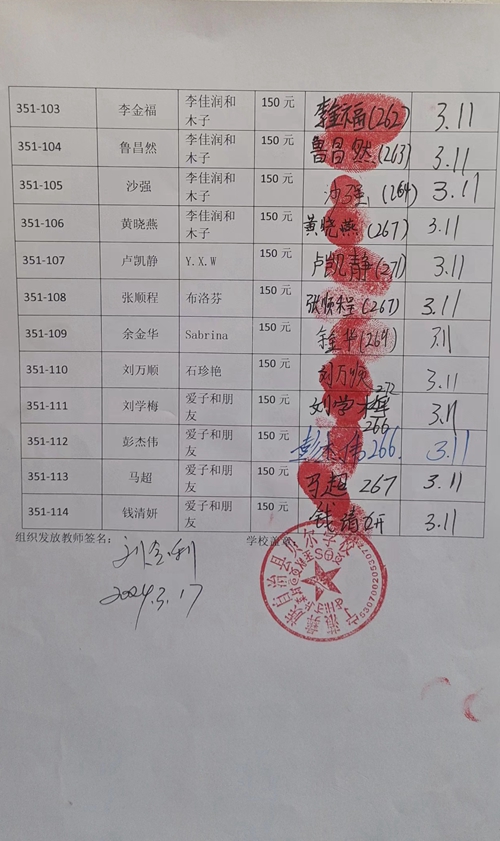 351-103 李金福 李佳润和 150 元 李金福(262) 3.11
木子
351-104 鲁昌然 李佳润和 150 元 鲁昌然(263) 3.11
木子
351-105 沙强 李佳润和 150 元 沙强(264) 3.11
木子
351-106 黄晓燕 李佳润和 150 元 黄晓燕(267) 3.11
木子
351-107 卢凯静 Y.X.W 150 元 卢凯静(271) 3.11
351-108 张顺程 布洛芬 150 元 张顺程(267) 3.11
351-109 余金华 Sabrina 150 元 余金华(264) 3.11
351-110 刘万顺 石珍艳 150 元 刘万顺 272 3.11
351-111 刘学梅 爱子和朋 150 元 刘学梅 266 3.11
友
351-112 彭杰伟 爱子和朋 150 元 彭杰伟 266. 3.11
友
351-113 马超 爱子和朋 150 元 马超 267 3.11
友
351-114 钱清妍 爱子和朋 150 元 钱清妍 3.11
友
组织发放教师签名: 学校盖章:
2024.3.17